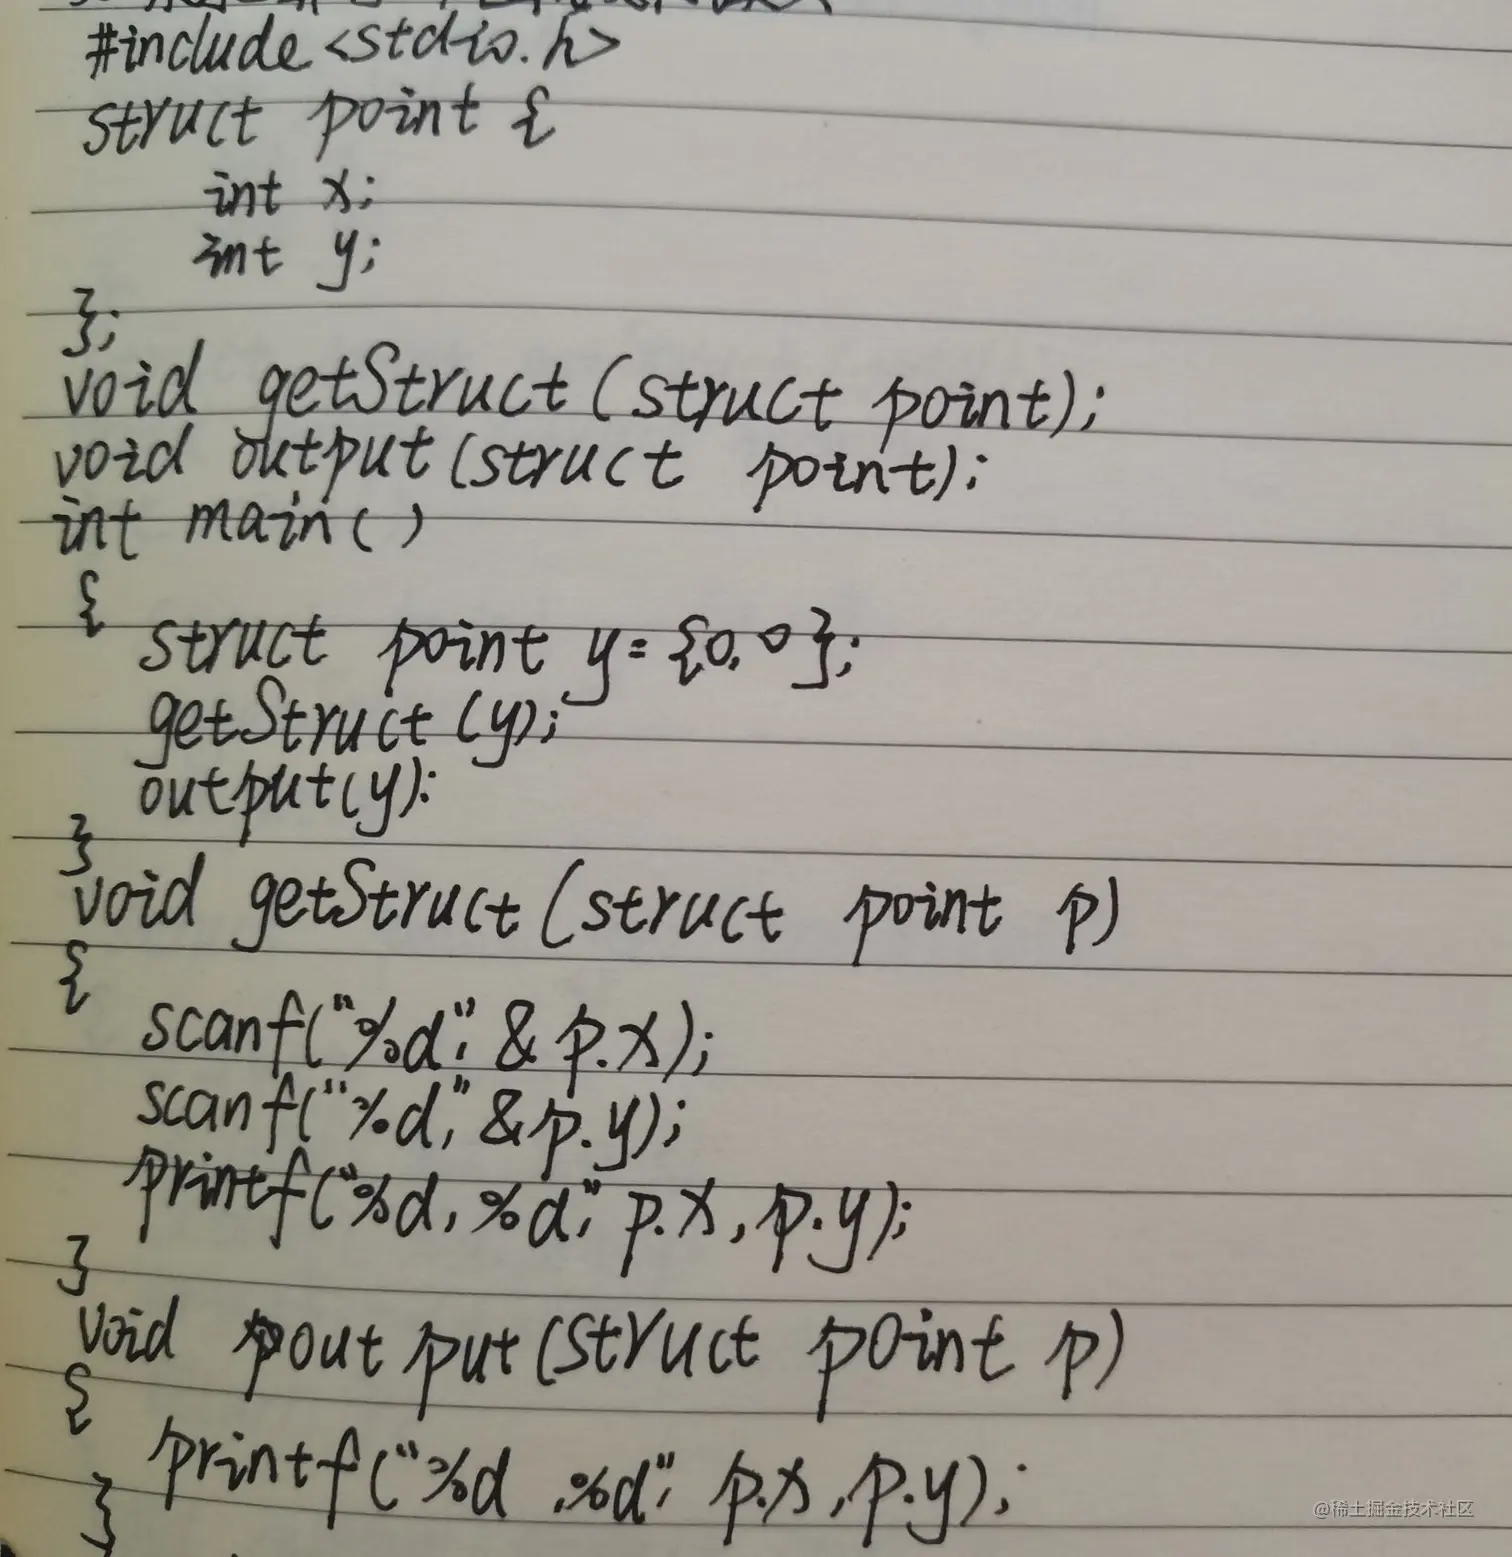 #include <stdio.h>
struct point {
int x;
int y;
};
void getStruct (struct point);
void output (struct point);
int main ( )
{
struct point y = {0, 0};
getStruct (y);
output(y):
}
void getStruct (struct point p)
{
scanf("%d", & p.x);
scanf("%d", & p.y);
printf("%d, %d", p.x, p.y);
}
void output (struct point p)
{
printf("%d ,%d", p.x, p.y);
}
@稀土掘金技术社区